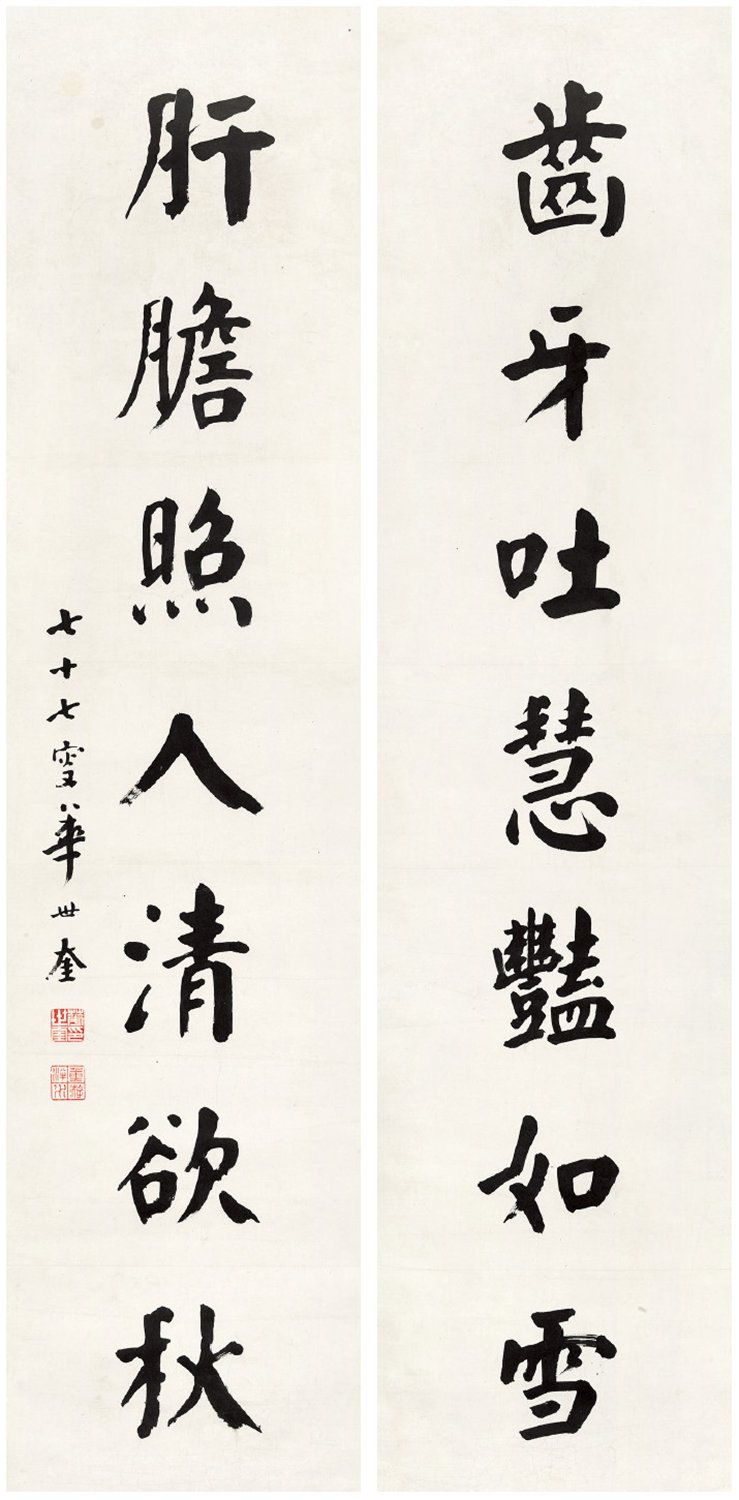 齒牙吐慧豔如雪
肝膽照人清欲秋
七十七叟華世奎